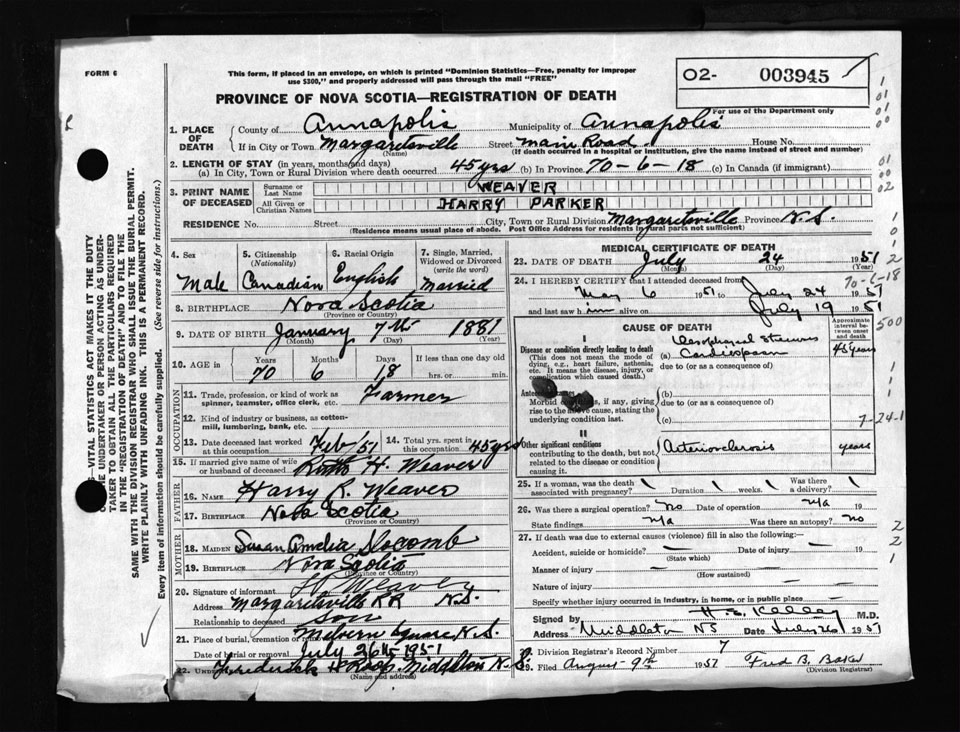 FORM 6
This form, if placed in an envelope, on which is printed "Dominion Statistics—Free, penalty for improper
use $300," and properly addressed will pass through the mail "FREE"
02- 003945
For use of the Department only
PROVINCE OF NOVA SCOTIA—REGISTRATION OF DEATH
1. PLACE OF DEATH
County of Annapolis Municipality of Annapolis
If in City or Town Margaretsville (Name) Street Main Road House No.
(If death occurred in a hospital or institution, give the name instead of street and number)
2. LENGTH OF STAY (in years, months and days)
(a) In City, Town or Rural Division where death occurred 45 yrs (b) In Province 70-6-18 (c) In Canada (if immigrant)
3. PRINT NAME OF DECEASED
Surname or Last Name WEAVER
All Given or Christian Names HARRY PARKER
RESIDENCE No. Street City, Town or Rural Division Margaretsville Province N.S.
(Residence means usual place of abode. Post Office Address for residents in rural parts not sufficient)
4. Sex Male
5. Citizenship (Nationality) Canadian
6. Racial Origin English
7. Single, Married, Widowed or Divorced (write the word) Married
8. BIRTHPLACE Nova Scotia
(Province or Country)
9. DATE OF BIRTH January 7th 1881
(Month) (Day) (Year)
10. AGE in Years 70 Months 6 Days 18 If less than one day
hrs. or min.
OCCUPATION
11. Trade, profession, or kind of work as spinner, teamster, office clerk, etc. Farmer
12. Kind of industry or business, as cotton-mill, lumbering, bank, etc.
13. Date deceased last worked at this occupation Feb/51
14. Total yrs. spent in this occupation 45 yrs
15. If married give name of wife or husband of deceased H. Weaver
FATHER
16. NAME Harry R. Weaver
17. BIRTHPLACE Nova Scotia
(Province or Country)
MOTHER
18. MAIDEN NAME Susan Amelia Slocomb
19. BIRTHPLACE Nova Scotia
(Province or Country)
20. Signature of informant H Weaver
Address Margaretsville RR N.S.
Relationship to deceased son
21. Place of burial, cremation Melvern Square N.S.
Date of burial or removal July 26th 1951
22. Frederick H Roop Middleton N.S.
(Name and address)
MEDICAL CERTIFICATE OF DEATH
23. DATE OF DEATH July 24 1951
(Month) (Day) (Year)
70-6-18
24. I HEREBY CERTIFY that I attended deceased from
May 6 1951 to July 24 1951
and last saw him alive on July 19 1951
CAUSE OF DEATH
Approximate interval between onset and death
I
Disease or condition directly leading to death
(This does not mean the mode of dying, e.g., heart failure, asthenia, etc. It means the disease, injury, or complication which caused death.)
(a) Cardiospasm 45 years
due to (or as a consequence of)
Morbid if any, giving rise to the above cause, stating the underlying condition last.
(b)
due to (or as a consequence of)
(c) 7-24-1
II
Other significant conditions contributing to the death, but not related to the disease or condition causing it
Arteriosclerosis years
500
25. If a woman, was the death associated with pregnancy? Duration weeks. Was there a delivery?
26. Was there a surgical operation? No Date of operation n/a 19
State findings n/a Was there an autopsy? no
27. If death was due to external causes (violence) fill in also the following:—
Accident, suicide or homicide? (State which) Date of injury 19
Manner of injury (How sustained)
Nature of injury
Specify whether injury occurred in industry, in home, or in public place
Signed by H. E. Kelley M.D.
Address Middleton NS Date July 26 1951
Division Registrar's Record Number 7
29. Filed August 9th 1951 Fred B. Baker
(Division Registrar)
VITAL STATISTICS ACT MAKES IT THE DUTY
UNDERTAKER OR PERSON ACTING AS UNDER-
TAKER TO OBTAIN ALL THE PARTICULARS REQUIRED
IN THE "REGISTRATION OF DEATH" AND TO FILE THE
SAME WITH THE DIVISION REGISTRAR WHO SHALL ISSUE THE BURIAL PERMIT.
WRITE PLAINLY WITH UNFADING INK. THIS IS A PERMANENT RECORD.
Every item of information should be carefully supplied. (See reverse side for instructions.)